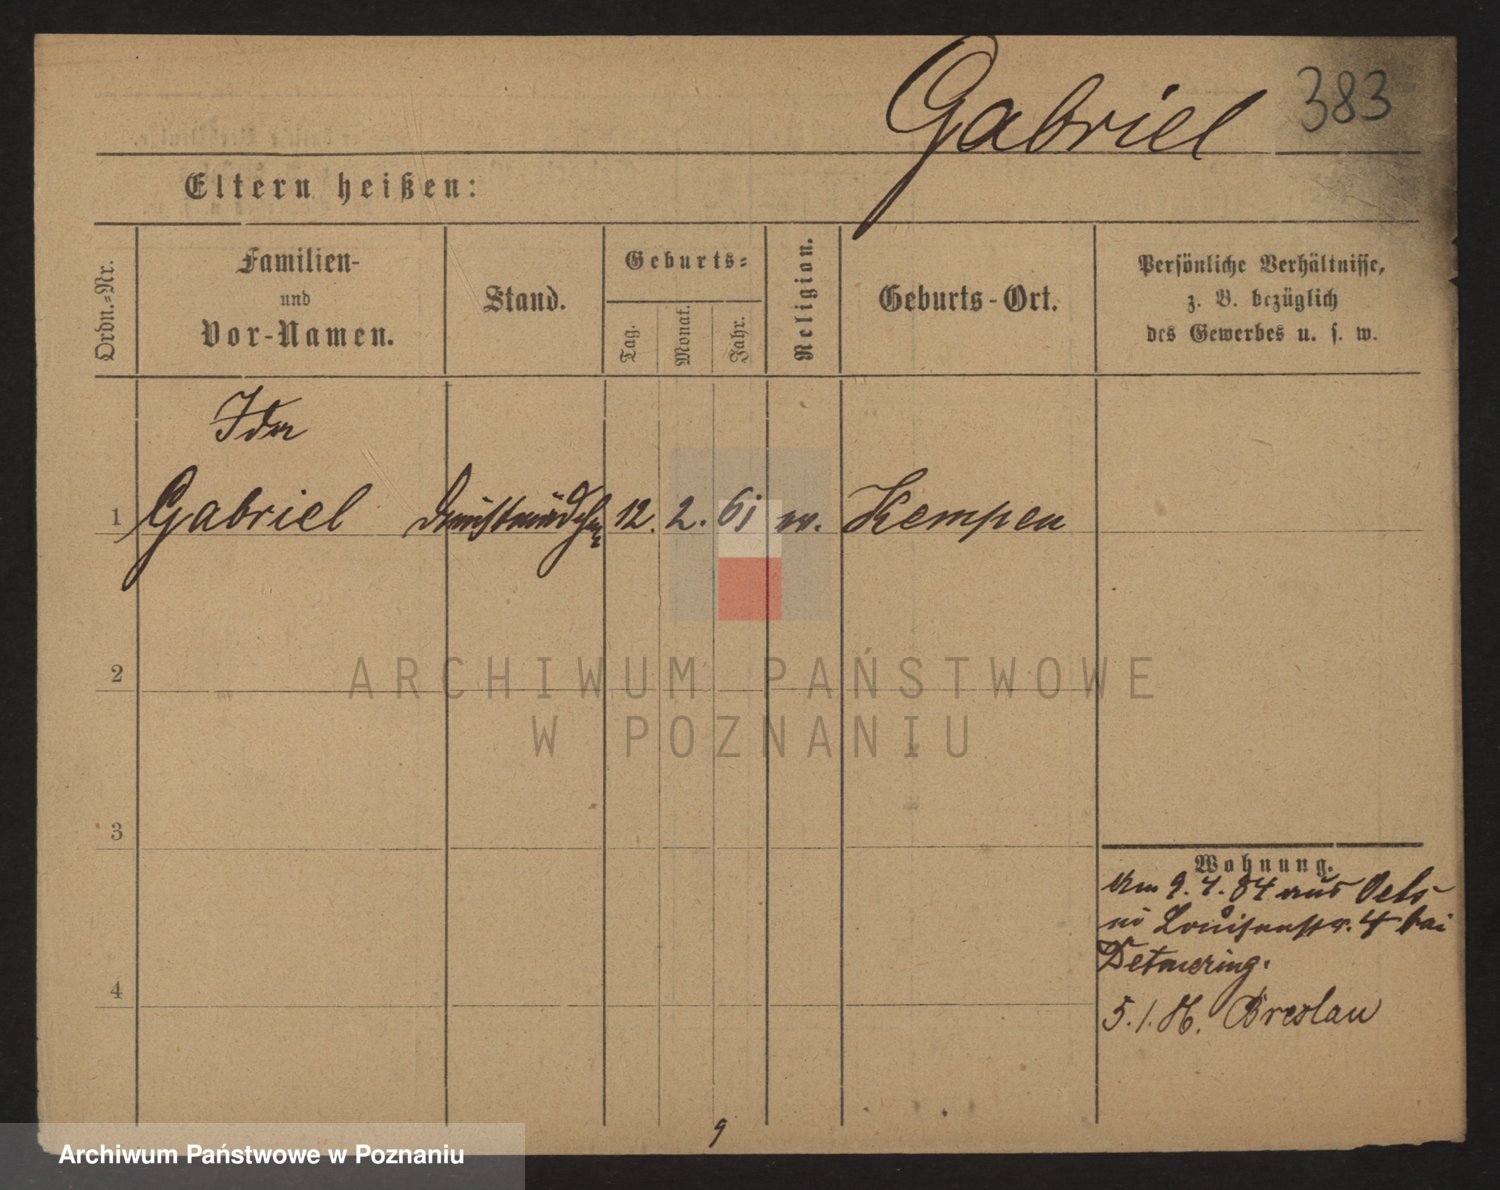 Gabriel 383
Eltern heißen:
Ordn.-Nr.
Familien-
und
Vor-Namen.
Stand.
Geburts-
Tag.
Monat.
Jahr.
Religion.
Geburts-Ort.
Persönliche Verhältnisse,
z. B. bezüglich
des Gewerbes u. s. w.
Ida
1 Gabriel Dienstmädchen 12. 2. 61 Kempen
2
3
4
ARCHIWUM PAŃSTWOWE
W POZNANIU
Wohnung.
Am 9. 7. 84 aus Oels
Louisenstr. 4 bei
Detmering.
5. 1. Breslau
9
Archiwum Państwowe w Poznaniu